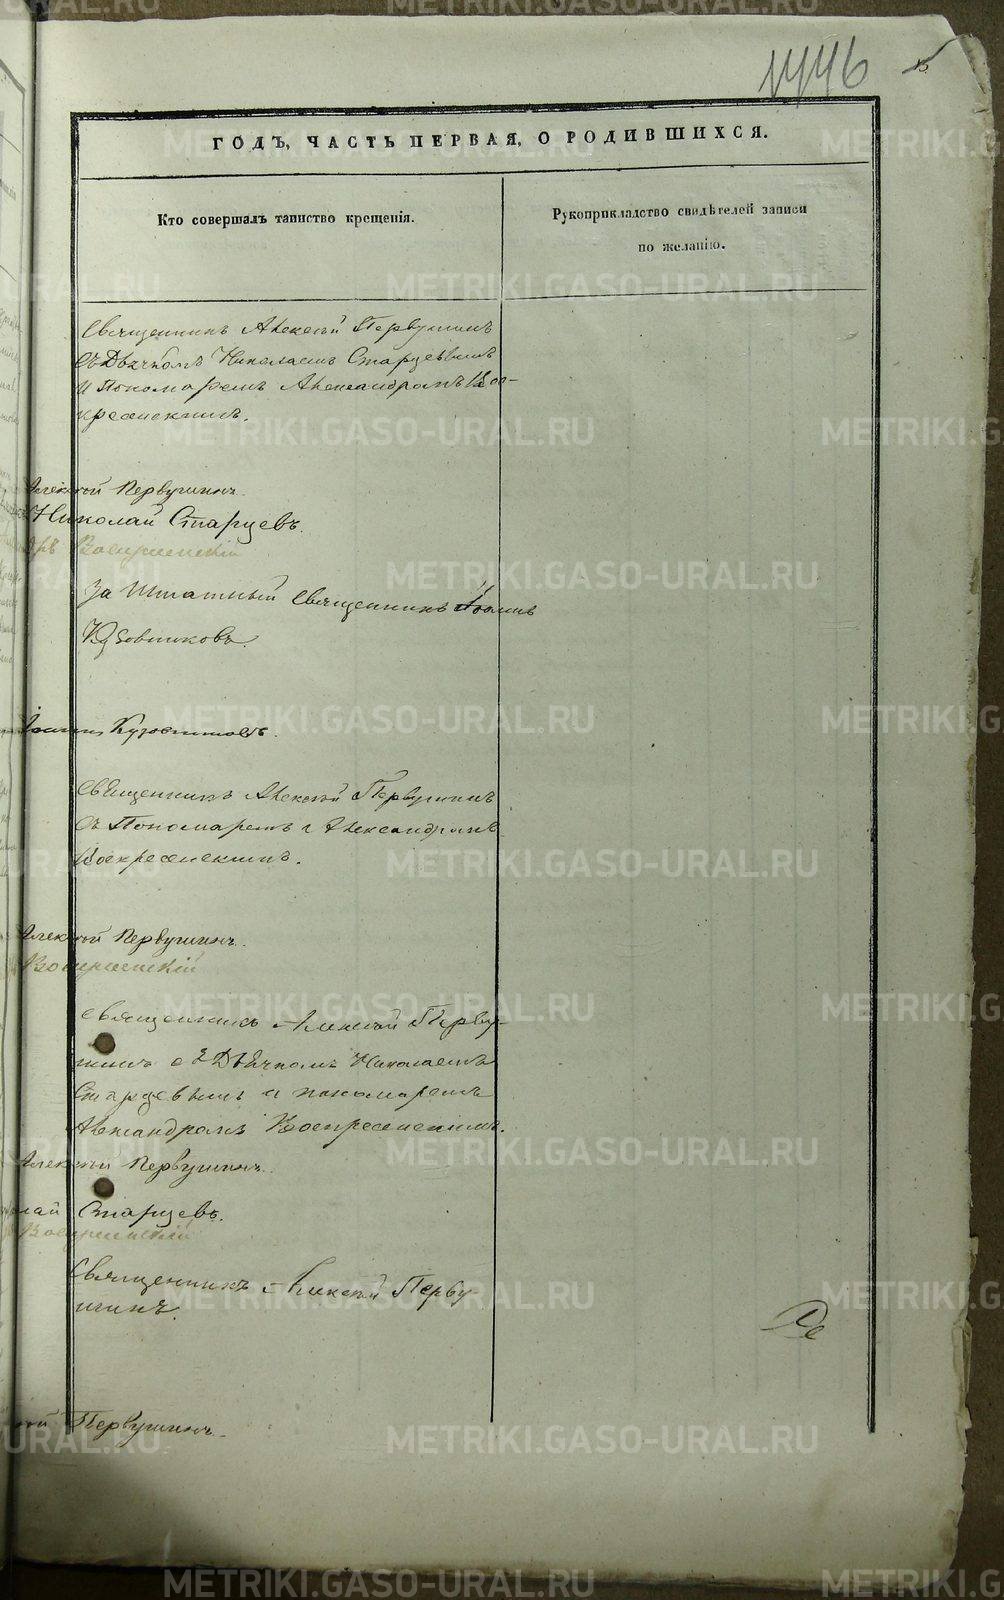 1446
ГОДЪ, ЧАСТЬ ПЕРВАЯ, О РОДИВШИХСЯ.
Кто совершалъ таинство крещенія.
Рукоприкладство свидѣтелей записи
по желанію.
Священникъ Алексѣй Первушинъ
съ Дьячкомъ Николаемъ Старцевымъ
и Пономаремъ Александромъ Вос-
кресенскимъ.
Алексѣй Первушинъ.
Николай Старцевъ.
Воскресенскій
За Штатный Священникъ Іоаннъ
Кузовниковъ.
Іоаннъ Кузовниковъ.
Священникъ Алексѣй Первушинъ
съ Пономаремъ Александромъ
Воскресенскимъ.
Алексѣй Первушинъ.
Воскресенскій
Священникъ Алексѣй Перву-
шинъ съ Дьячкомъ Николаемъ
Старцевымъ и пономаремъ
Александромъ Воскресенскимъ.
Алексѣй Первушинъ.
лай Старцевъ.
Воскресенскій
Священникъ Алексѣй Перву-
шинъ.
Первушинъ.
METRIKI.GASO-URAL.RU